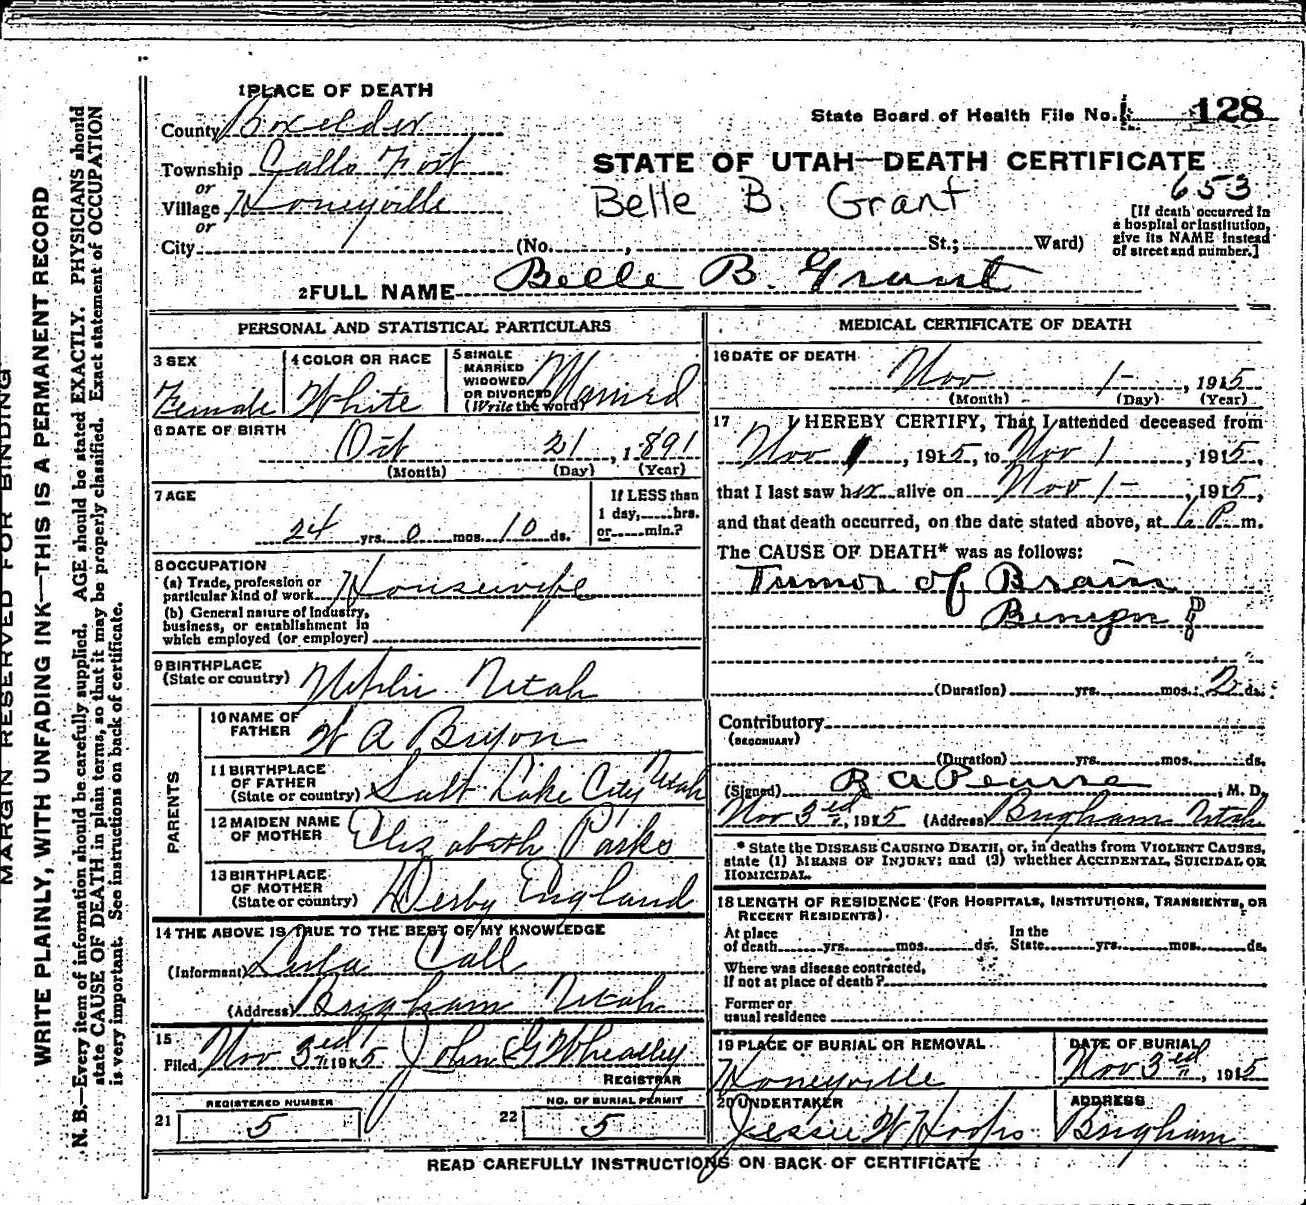 MARGIN RESERVED FOR BINDING
WRITE PLAINLY, WITH UNFADING INK—THIS IS A PERMANENT RECORD
N. B.—Every item of information should be carefully supplied. AGE should be stated EXACTLY. PHYSICIANS should
state CAUSE OF DEATH in plain terms, so that it may be properly classified. Exact statement of OCCUPATION
is very important. See instructions on back of certificate.
1 PLACE OF DEATH
County Boxelder
State Board of Health File No. 128
Township Calls Fort
STATE OF UTAH—DEATH CERTIFICATE
or
Village Honeyville
Belle B. Grant
653
or
[If death occurred in
a hospital or institution,
give its NAME instead
of street and number.]
City (No. , St.; Ward)
2 FULL NAME Belle B. Grant
PERSONAL AND STATISTICAL PARTICULARS
3 SEX Female
4 COLOR OR RACE White
5 SINGLE
MARRIED
WIDOWED
OR DIVORCED
(Write the word) Married
6 DATE OF BIRTH
Oct 21, 1891
(Month) (Day) (Year)
7 AGE
24 yrs. 0 mos. 10 ds.
If LESS than
1 day, hrs.
or min.?
8 OCCUPATION
(a) Trade, profession or
particular kind of work Housewife
(b) General nature of Industry,
business, or establishment in
which employed (or employer)
9 BIRTHPLACE
(State or country) Nephi Utah
PARENTS
10 NAME OF
FATHER W A Bryon
11 BIRTHPLACE
OF FATHER
(State or country) Salt Lake City Utah
12 MAIDEN NAME
OF MOTHER Elizabeth Parks
13 BIRTHPLACE
OF MOTHER
(State or country) Derby England
14 THE ABOVE IS TRUE TO THE BEST OF MY KNOWLEDGE
(Informant) Call
(Address) Brigham Utah
15
Filed Nov 3rd 1915 John G Wheatley
REGISTRAR
21 REGISTERED NUMBER 5
22 NO. OF BURIAL PERMIT 5
MEDICAL CERTIFICATE OF DEATH
16 DATE OF DEATH
Nov 1-, 1915
(Month) (Day) (Year)
17 I HEREBY CERTIFY, That I attended deceased from
Nov 1, 1915, to Nov 1, 1915,
that I last saw her alive on Nov 1-, 1915,
and that death occurred, on the date stated above, at 6 P. m.
The CAUSE OF DEATH* was as follows:
Tumor of Brain
Benign ?
(Duration) yrs. mos. 2 ds.
Contributory
(SECONDARY)
(Duration) yrs. mos. ds.
(Signed) R A Pearse, M. D.
Nov 3rd, 1915 (Address) Brigham Utah
* State the DISEASE CAUSING DEATH, or, in deaths from VIOLENT CAUSES,
state (1) MEANS OF INJURY; and (2) whether ACCIDENTAL, SUICIDAL OR
HOMICIDAL.
18 LENGTH OF RESIDENCE (FOR HOSPITALS, INSTITUTIONS, TRANSIENTS, OR
RECENT RESIDENTS).
At place
of death yrs. mos. ds.
In the
State yrs. mos. ds.
Where was disease contracted,
If not at place of death?
Former or
usual residence
19 PLACE OF BURIAL OR REMOVAL
Honeyville
DATE OF BURIAL
Nov 3rd, 1915
20 UNDERTAKER
Jessie W Hoops
ADDRESS
Brigham
READ CAREFULLY INSTRUCTIONS ON BACK OF CERTIFICATE